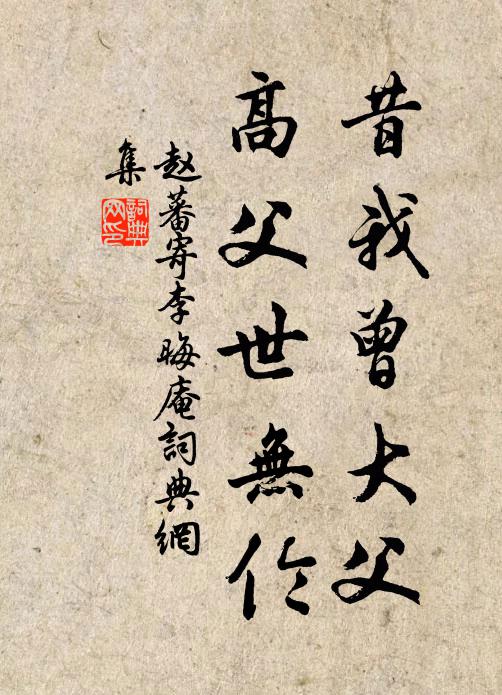 昔我曾大父
高父世無伦
赵蕃寄李晦庵詞典網
集
詞典网印